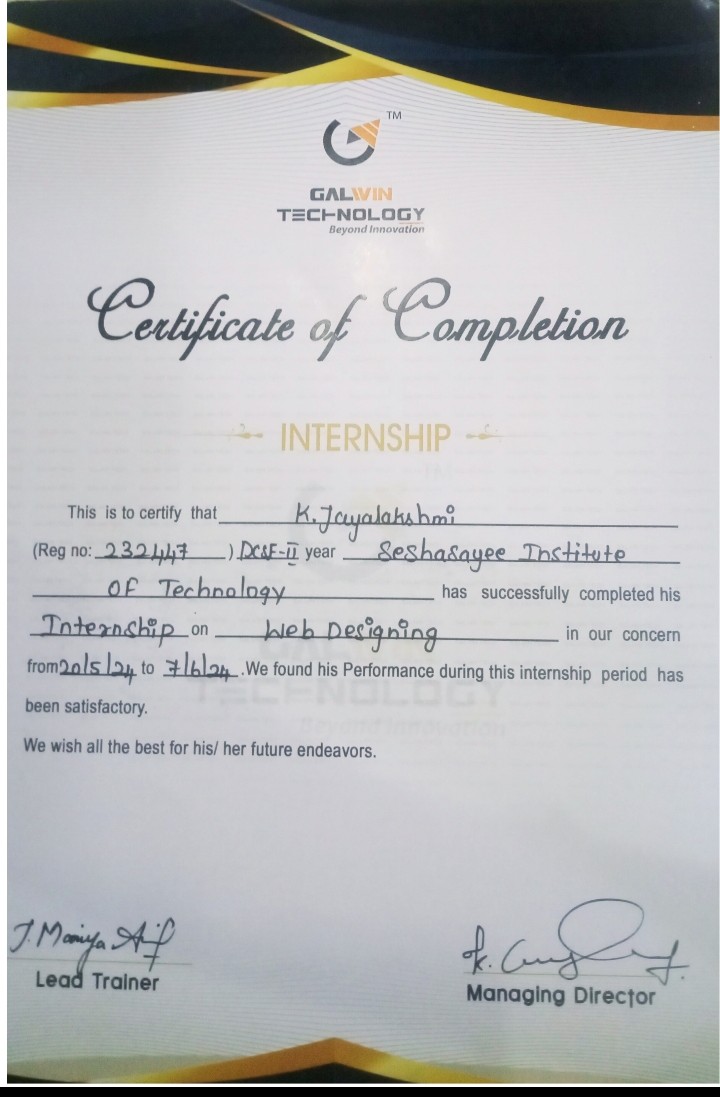 TM
GALWIN
TECHNOLOGY
Beyond Innovation
Certificate of Completion
INTERNSHIP
This is to certify that K. Jayalakshmi
(Reg no: 232447 ) DCSE-II year Seshasayee Institute
Of Technology has successfully completed his
Internship on Web Designing in our concern
from 20/5/24 to 7/6/24 .We found his Performance during this internship period has
been satisfactory.
We wish all the best for his/ her future endeavors.
Lead Trainer
Managing Director